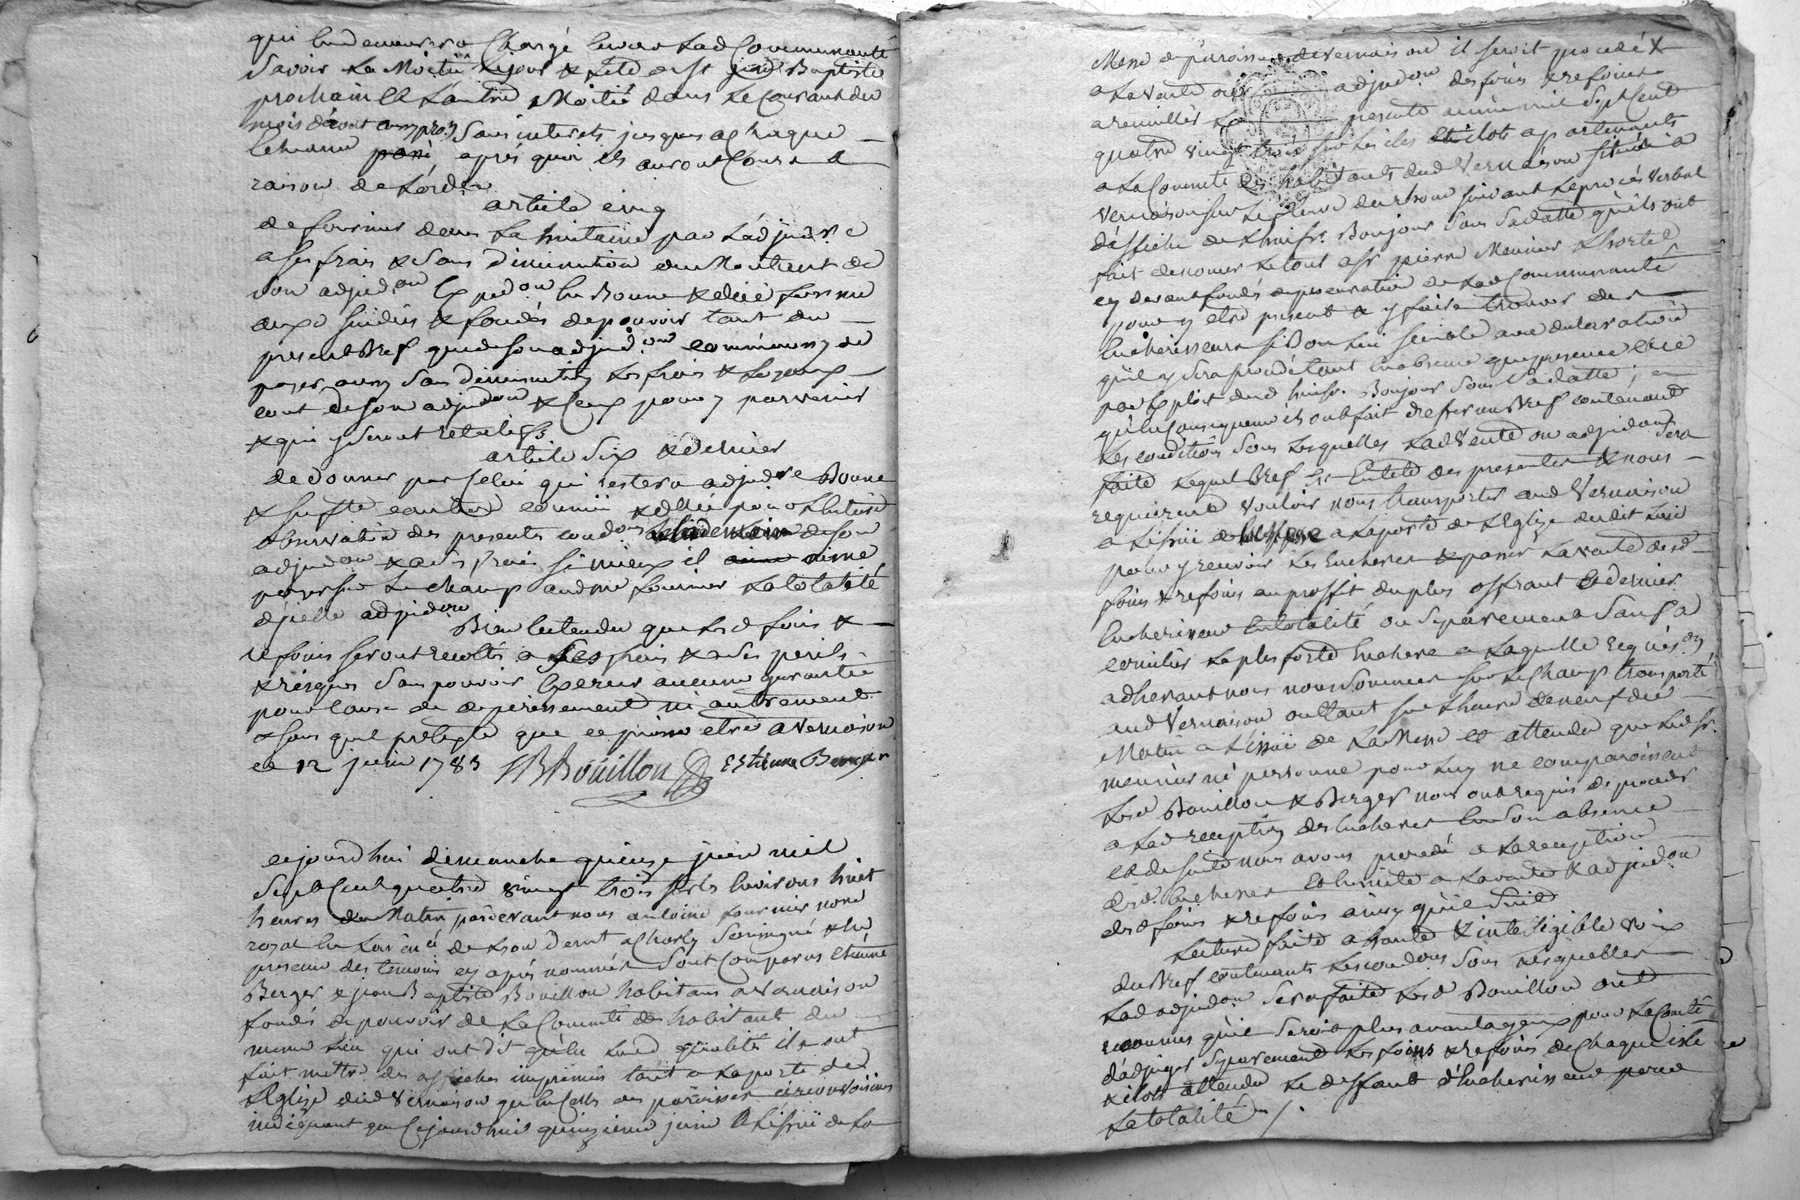 qui en demeurera Chargé envers Lad Communauté
Savoir La Moitié Le jour & fete de St jean Baptiste
prochain et L'autre Moitié dans Le Courant du
mois d'aout aussy pron Sans interets jusques a Chaque
apres quoi ils auront Cours a
raison de L'ord.re
article cinq
de fournir dans La huitaine par L'adjud.re
a ses frais & Sans Diminution du Montant de
Son adjud.on Exped.on En Bonne & due forme
aux Sindics & fondés de pouvoir tant du
present Bref que de Son adjud.on comme aussy de
payer aussy Sans Diminution Les frais &
cout de Son adjud.on & Ceux pour y parvenir
& qui y Seront relatifs
article Six & dernier
de donner par Celui qui restera adjud.re Bonne
& Suff.te caution pour L'entiere
observation des presentes cond.ons de Son
adjud.on & a ses frais Si mieux il aime
payer Sur Le Champ La totalité
d'icelle adjud.on
Bien Entendu que Lesd foins &
refoins Seront recoltés a Ses frais & a Ses perils
& risques Sans pouvoir Exercer aucune garantie
pour Cause de deperissement ni autrement
& Sous quel pretexte que ce puisse etre a Vernaison
ce 12 juin 1783 JB Boüillon Estienne Berger
cejourd'hui dimanche quinze juin mil
Sept Cent quatre vingt trois Sur Les Environs huit
heures du Matin pardevant nous antoine fournier no.re
royal En La Sen.ée de Lyon Dem.t a Charly Soussigné & En
presence des temoins cy après nommés Sont Comparus Etienne
Berger & jean Baptiste Bouillon habitans a Vernaison
fondés de pouvoir de La Commté des habitans du
meme Lieu qui ont dit qu'En Lad qualité ils ont
fait mettre des affiches imprimés tant a La porte de
L'Eglise dud Vernaison qu'En Celles des paroisses circonvoisines
indiquant que Cejourd'hui quinzieme juin a L'issüe de La
Messe de paroisse de Vernaison il Seroit procedé
a La vente ou adjud.on des foins & refoins
a recueillir La presente année mil Sept Cent
quatre vingt trois Sur Les isles & ilots apartenants
a La Commté des habitants dud Vernaison Situés a
Vernaison Sur Le fleuve du rhone Suivant Le procès verbal
d'affiche de L'huiss.r Boujour Sous Sa datte qu'ils ont
fait denoncer Le tout a Sr pierre Meunier
cy devant fondé de procuration de Lad Communauté
pour y etre present & y faire trouver des
Encherisseurs Si Bon Lui Semble avec declaration
qu'il y Sera procedé tant En absence que presence
par Exploit dud huiss.r Boujour Sous Sa datte;
qu'En Consequence ils ont fait dresser un Bref contenant
Les conditions Sous Lesquelles Lad Vente ou adjud.on Sera
faite Lequel Bref Est En tete des presentes & nous
requierent vouloir nous transporter aud Vernaison
a L'issüe de a La porte de L'Eglise dudit Lieu
pour y recevoir Les Encheres & passer La vente desd
foins & refoins au proffit du plus offrant & dernier
Encherisseur En totalité ou Separement Sauf a
concilier La plus forte Enchere a Laquelle requis.on
adherant nous nous Sommes Sur Le Champ transporté
aud Vernaison ou Etant Sur L'heure de neuf du
Matin a L'issüe de La Messe et attendu que Led Sr.
meunier ni personne pour Luy ne comparoissent
Lesd Bouillon & Berger nous ont requis de proceder
a Lad reception des Encheres En Son absence
et de Suite nous avons procedé a La reception
desd. Encheres Ensuite a La vente & adjud.on
desd foins & refoins ainsy qu'il Suit
Lecture faite a haute & inteligible voix
du Bref contenant Les cond.ons Sous Lesquelles
Lad adjud.on Sera faite Lesd Bouillon ont
reconnus qu'il Seroit plus avantageux pour La Comté
d'adjuger Separement Les foins & refoins de Chaque isle
& ilots attendu Le deffaut d'Encherisseurs pour
La totalité ./.